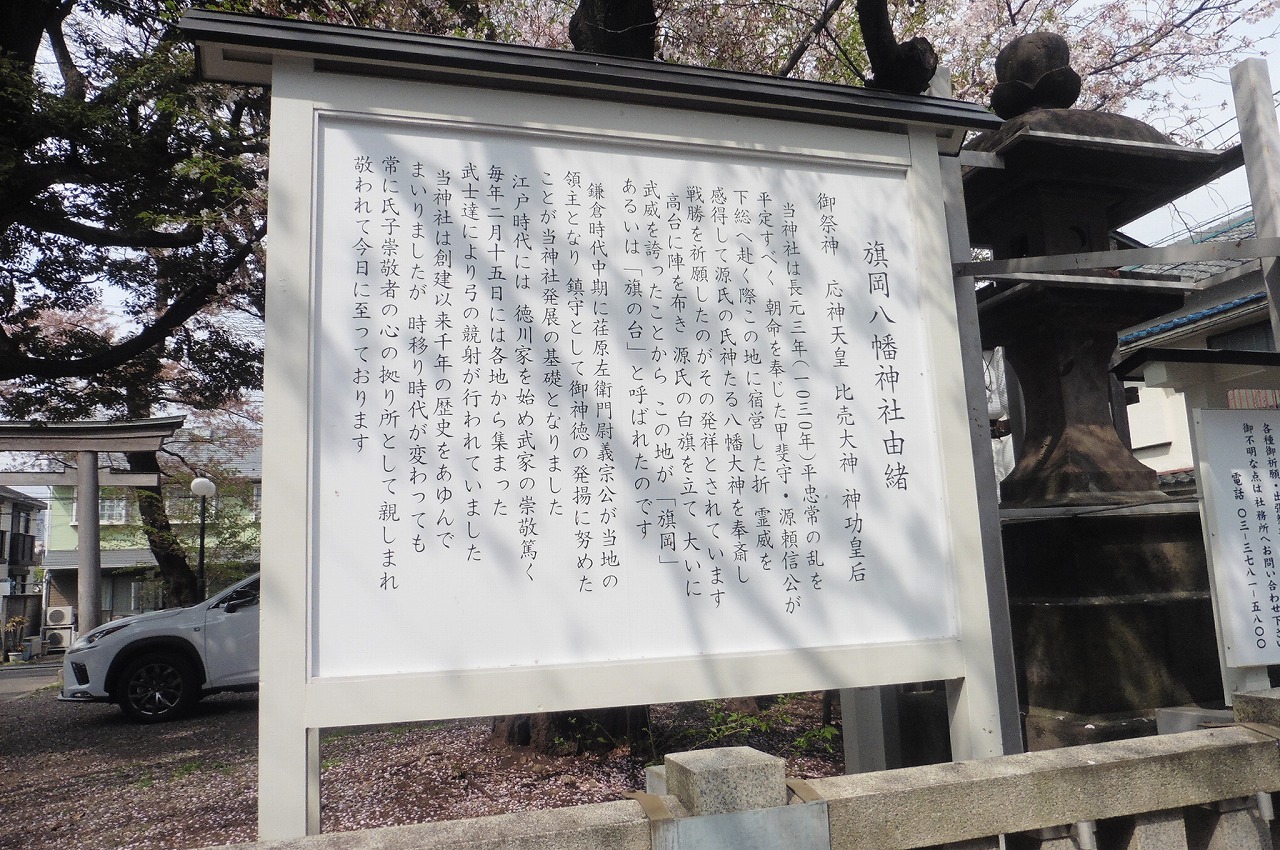 旗岡八幡神社由緒
御祭神　応神天皇　比売大神　神功皇后
当神社は長元三年(一〇三〇年)平忠常の乱を
平定すべく 朝命を奉じた甲斐守・源頼信公が
下総へ赴く際この地に宿営した折 霊威を
感得して源氏の氏神たる八幡大神を奉斎し
戦勝を祈願したのがその発祥とされています
高台に陣を布き 源氏の白旗を立て 大いに
武威を誇ったことから この地が「旗岡」
あるいは「旗の台」と呼ばれたのです
鎌倉時代中期に荏原左衛門尉義宗公が当地の
領主となり 鎮守として御神徳の発揚に努めた
ことが当神社発展の基礎となりました
江戸時代には 徳川家を始め武家の崇敬篤く
毎年二月十五日には各地から集まった
武士達により弓の競射が行われていました
当神社は創建以来千年の歴史をあゆんで
まいりましたが 時移り時代が変わっても
常に氏子崇敬者の心の拠り所として親しまれ
敬われて今日に至っております
各種御祈願・出張
御不明な点は社務所へお問い合わせ下さい
電話 〇三-三七八一-五八〇〇